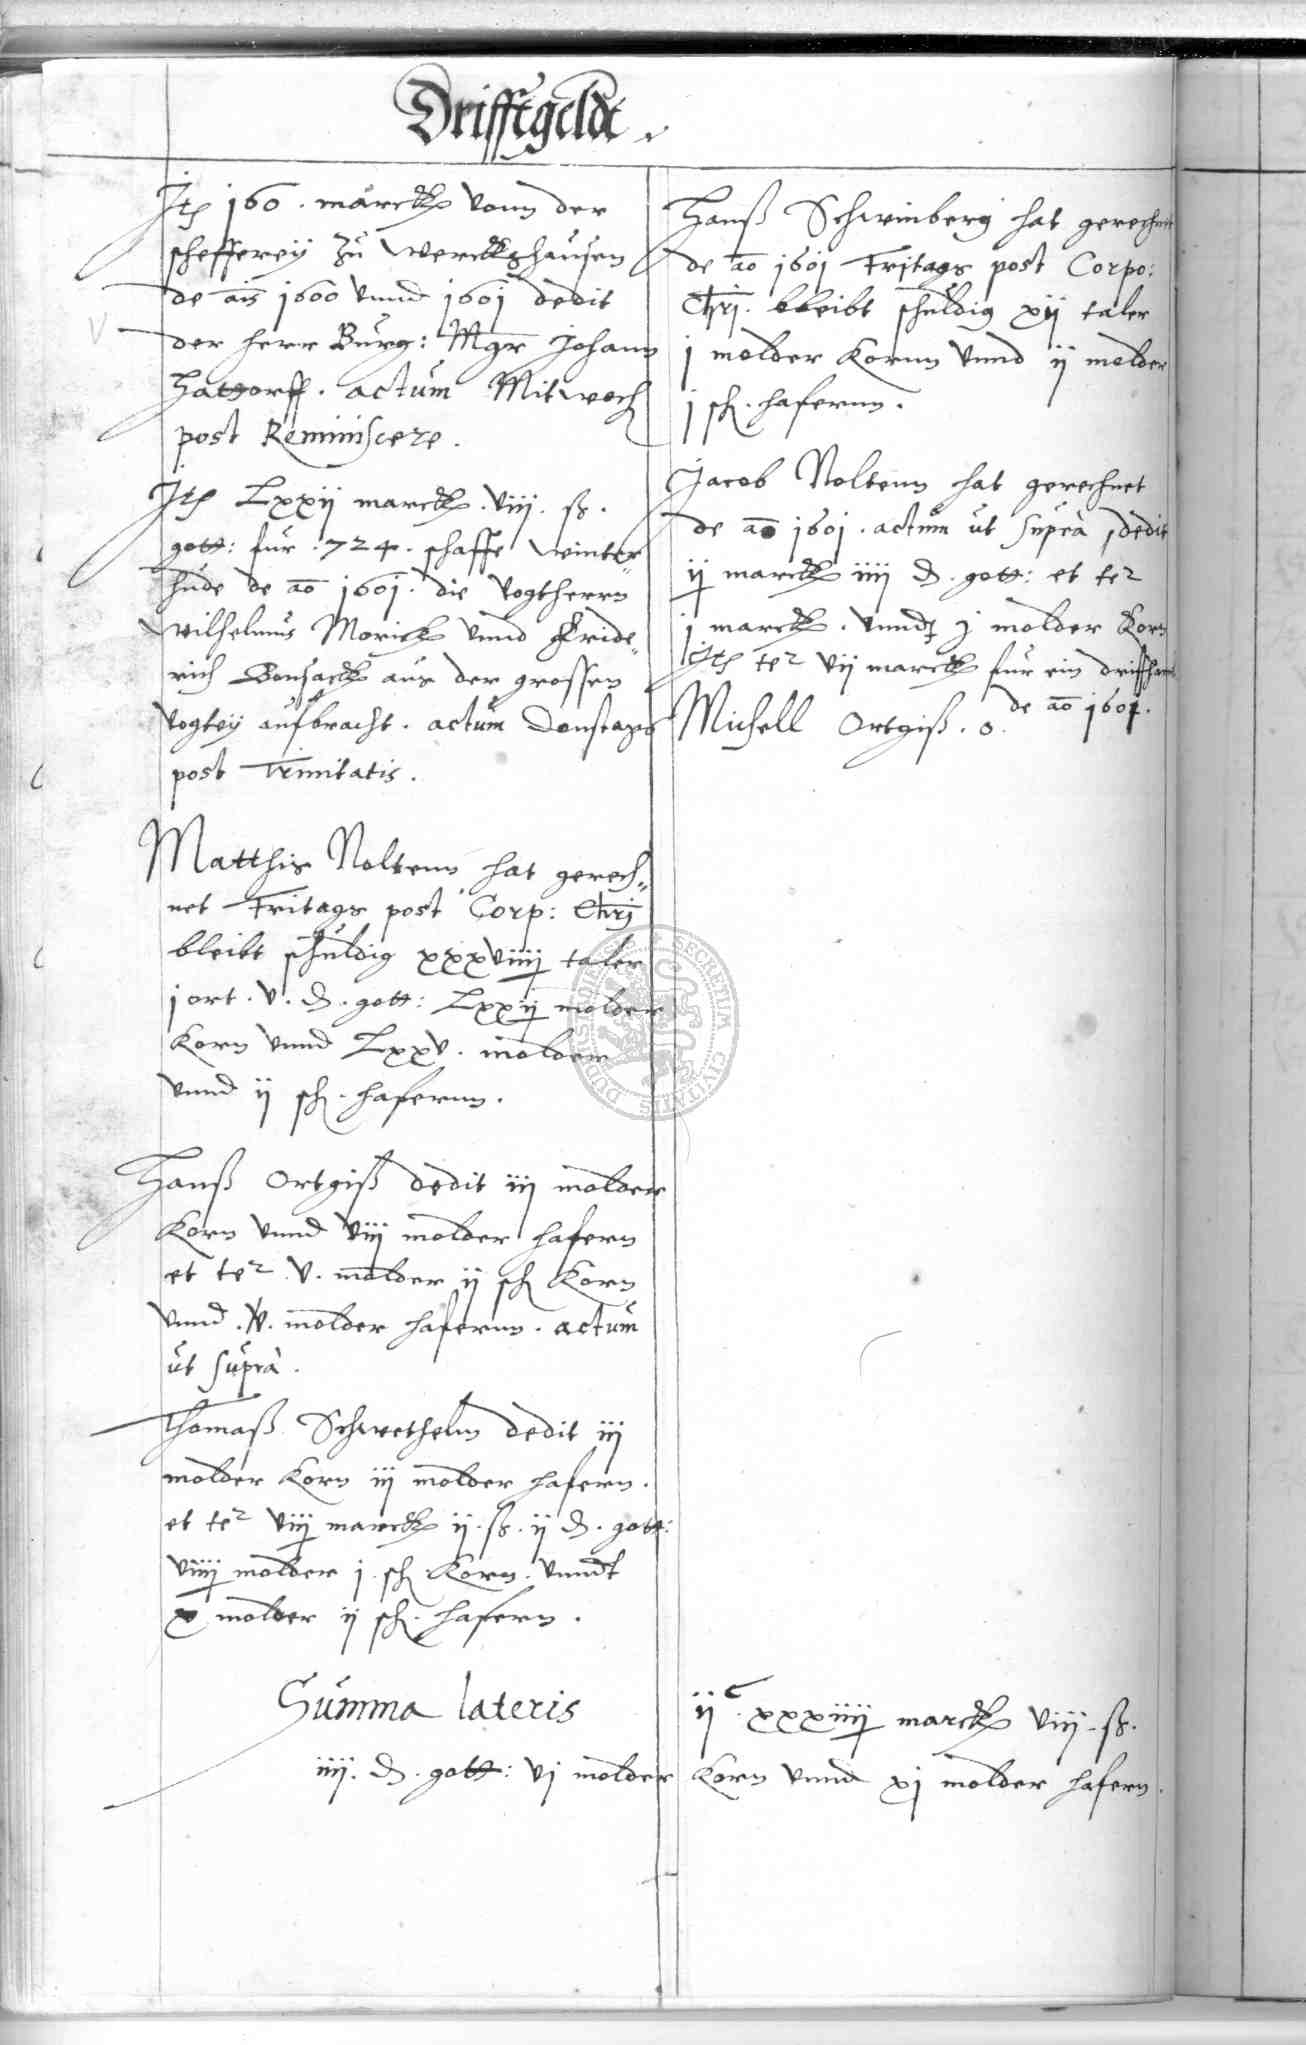 Drifftgeldt
Jt 160 . marck vonn der
schefferey zu Werckshausen
de ais 1600 vnnd 1601 dedit
der herr Burg: Mgr Johann
Hattorff . actum Mitwoch
post Reminiscere .
Jt Lxxij marck . viij . ß .
gott: fur . 724 . schaffe winter
hude de ao 1601 . die vogtherrn
Wilhelmus Morick vnnd Fride„
rich Bonsack aus der grossen
vogtey aufbracht . actum Donstags
post Trinitatis .
Matthis Noltenn hat gerech„
net Fritags post Corp: Chrj
bleibt schuldig xxxviiij taler
j ort . v . d . gott: Lxxij molder
Korn vnnd Lxxv . molder
vnnd ij sch . hafernn .
Hanß Ortgiß dedit iij molder
Korn vnnd viij molder hafern
et ter v . molder ij sch Korn
vnnd . v . molder hafernn . actum
ut supra .
Thomaß Schwethelm dedit iij
molder Korn iij molder hafern .
et ter viij marck ij . ß . ij d . gott:
viiij molder j . sch Korn . vnndt
x molder ij sch . hafern .
Hanß Schwinberg hat gerechnet
de ao 1601 Fritags post Corpo:
Chrj . bleibt schuldig xij taler
j molder Kornn vnnd ij molder
j sch . hafernn .
Jacob Noltenn hat gerechnet
de ao 1601 . actum ut supra , dedit
ij marck iiij d . gott: et ter
j marck . vnnd j molder Korn
Jt ter vij marck fur ein
de ao 1601 .
Michell Ortgiß . o .
Summa lateris ij c . xxxiiij marck viij . ß .
iiij . d . gott: vj molder Korn vnnd xj molder hafern .
SECRETUM CIVITATIS DUDERSTADIENSIS